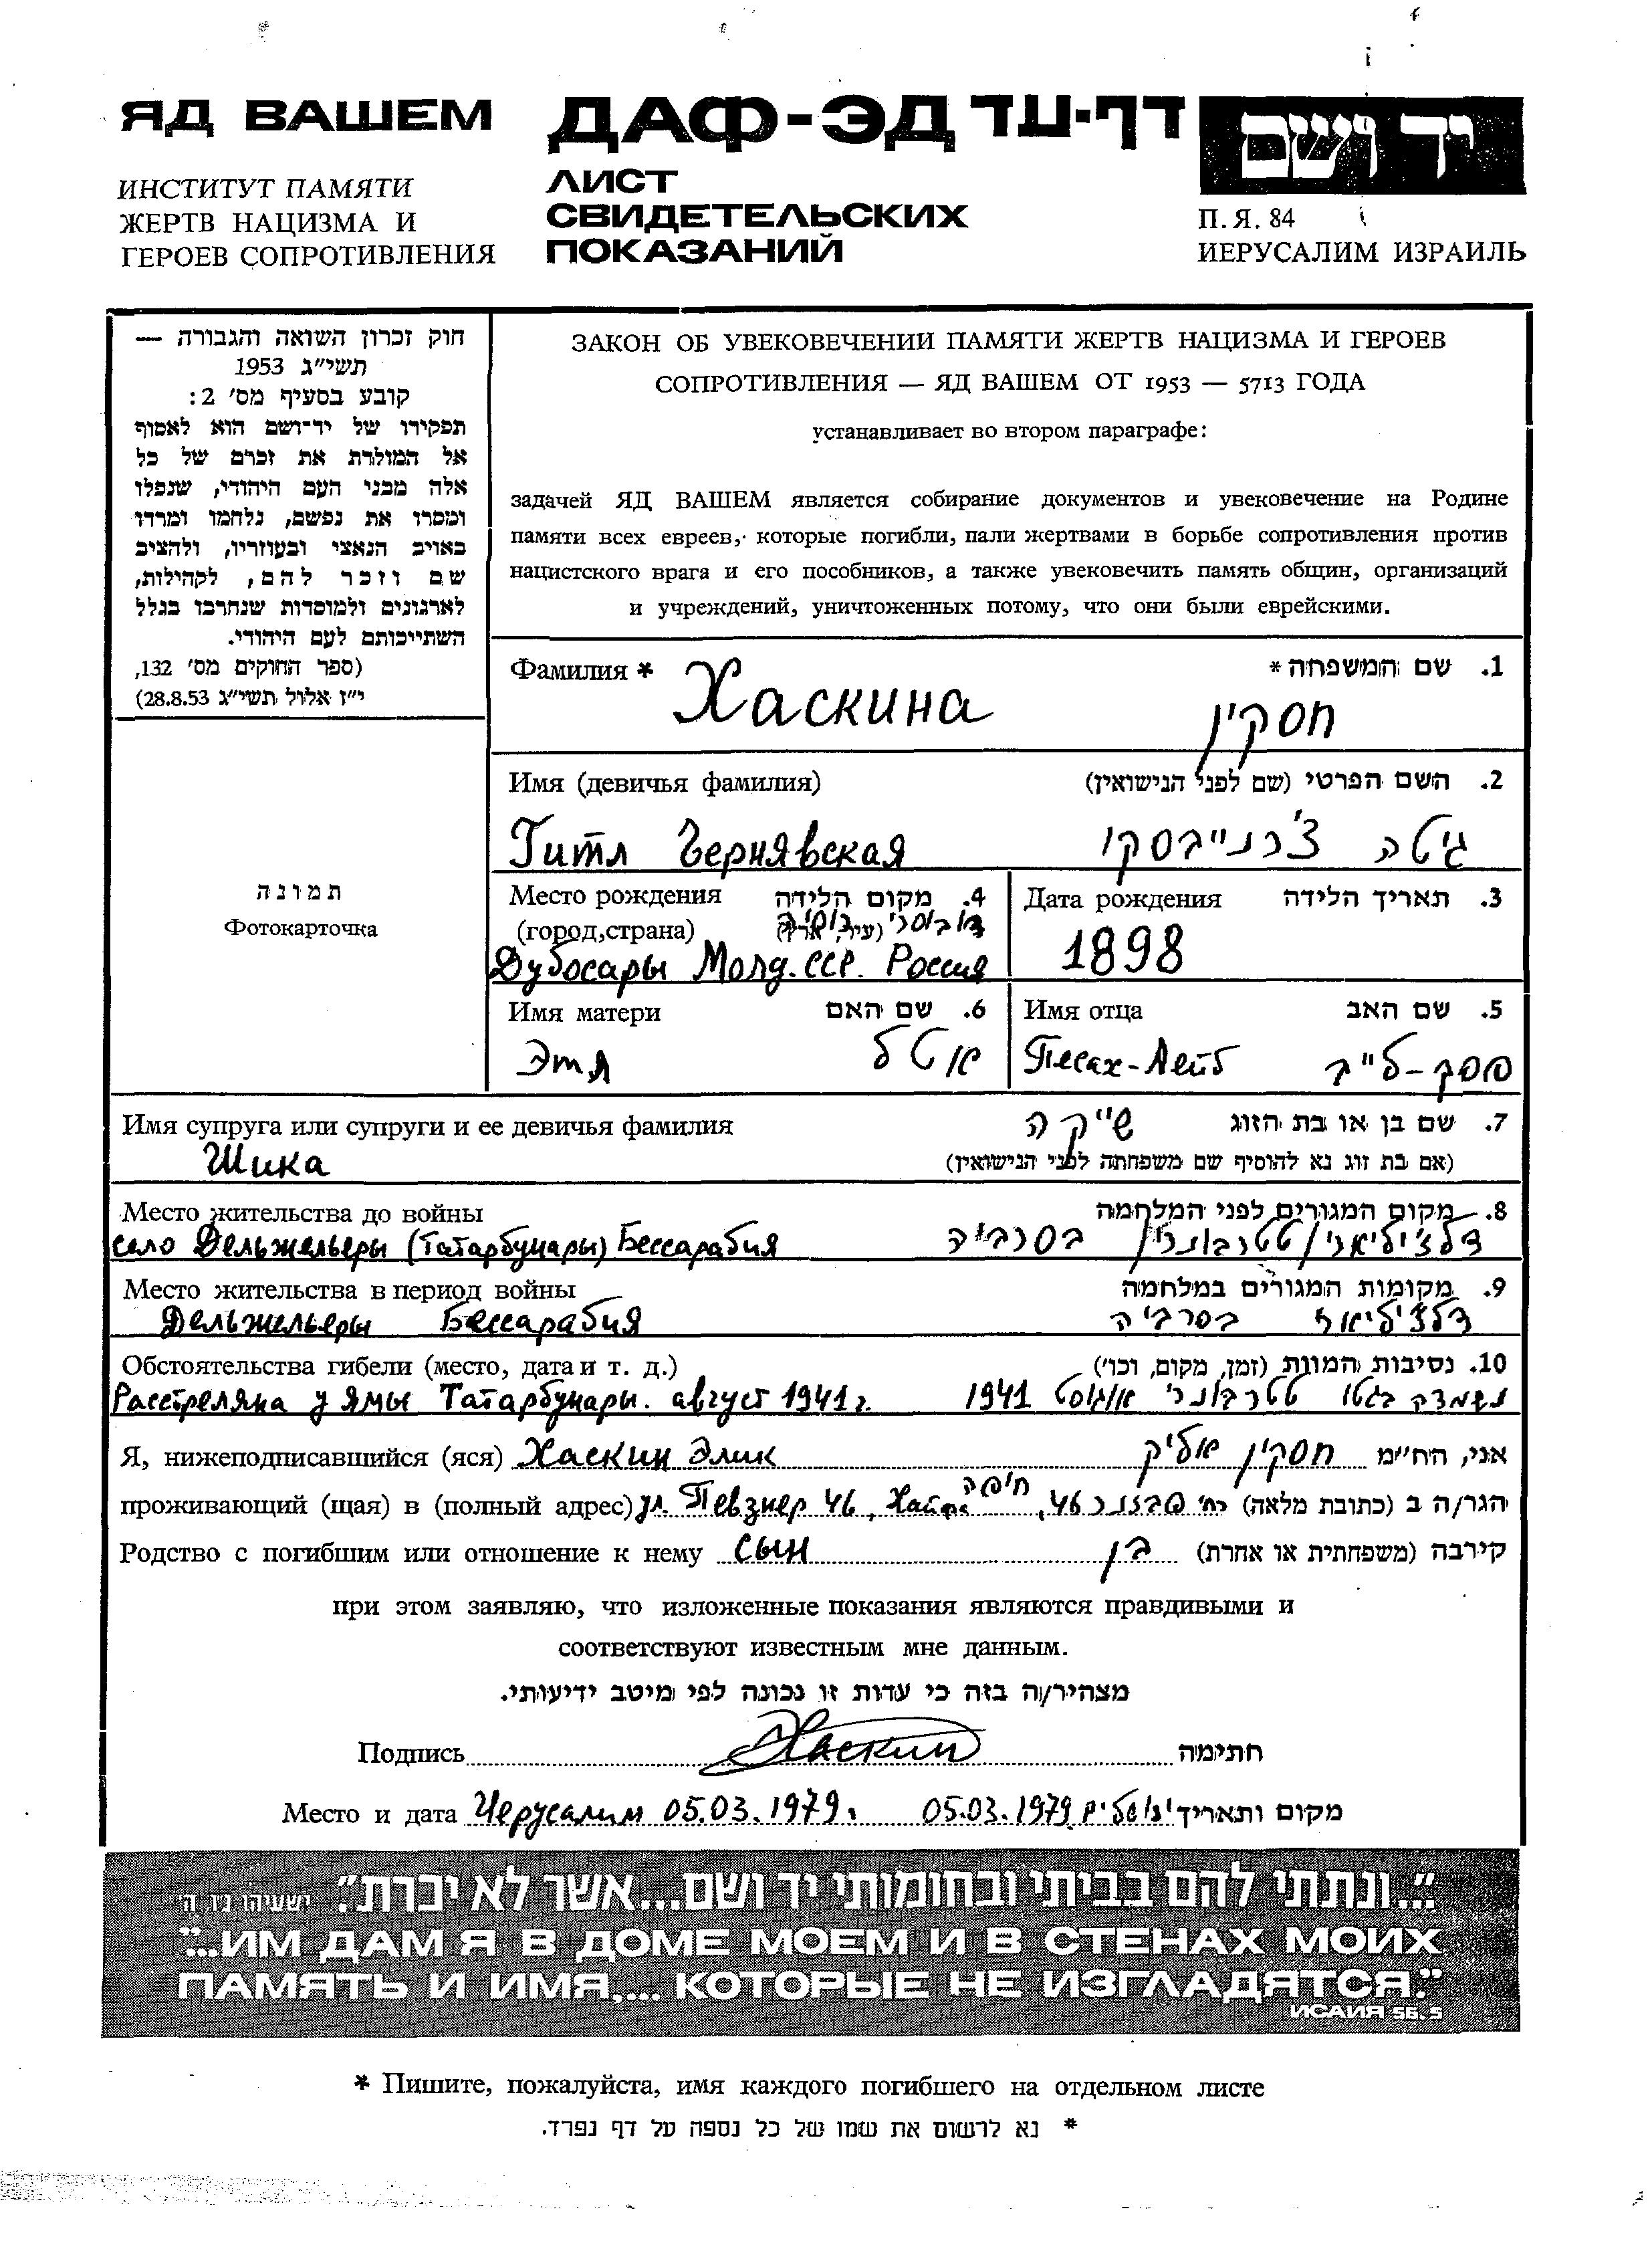 ЯД ВАШЕМ
ИНСТИТУТ ПАМЯТИ
ЖЕРТВ НАЦИЗМА И
ГЕРОЕВ СОПРОТИВЛЕНИЯ
ДАФ-ЭД דף-עד
ЛИСТ
СВИДЕТЕЛЬСКИХ
ПОКАЗАНИЙ
יד ושם
П.Я. 84
ИЕРУСАЛИМ ИЗРАИЛЬ
חוק זכרון השואה והגבורה —
תשי"ג 1953
קובע בסעיף מס' 2:
תפקידו של יד-ושם הוא לאסוף
אל המולדת את זכרם של כל
אלה מבני העם היהודי, שנפלו
ומסרו את נפשם, נלחמו ומרדו
באויב הנאצי ובעוזריו, ולהציב
שם וזכר להם, לקהילות,
לארגונים ולמוסדות שנחרבו בגלל
השתייכותם לעם היהודי.
(ספר החוקים מס' 132,
י"ז אלול תשי"ג 28.8.53)
תמונה
Фотокарточка
ЗАКОН ОБ УВЕКОВЕЧЕНИИ ПАМЯТИ ЖЕРТВ НАЦИЗМА И ГЕРОЕВ
СОПРОТИВЛЕНИЯ — ЯД ВАШЕМ ОТ 1953 — 5713 ГОДА
устанавливает во втором параграфе:
задачей ЯД ВАШЕМ является собирание документов и увековечение на Родине
памяти всех евреев, которые погибли, пали жертвами в борьбе сопротивления против
нацистского врага и его пособников, а также увековечить память общин, организаций
и учреждений, уничтоженных потому, что они были еврейскими.
Фамилия * 1. שם המשפחה *
Хаскина חסקין
Имя (девичья фамилия) 2. השם הפרטי (שם לפני הנישואין)
Гитл Чернявская גיטה צ'רנייבסקי
Место рождения 4. מקום הלידה
(город,страна) (עיר, ארץ) דובוסרי רוסיה
Дубосары Молд.ССР. Россия
Дата рождения 3. תאריך הלידה
1898
Имя матери 6. שם האם
Этл אטל
Имя отца 5. שם האב
Песах-Лейб פסח-לייב
Имя супруга или супруги и ее девичья фамилия 7. שם בן או בת הזוג שייקה
Шика (אם בת זוג נא להוסיף שם משפחתה לפני הנישואין)
Место жительства до войны 8. מקום המגורים לפני המלחמה
село Дельжельеры (Татарбунары) Бессарабия בסרביה
Место жительства в период войны 9. מקומות המגורים במלחמה
Дельжельеры Бессарабия בסרביה
Обстоятельства гибели (место, дата и т. д.) 10. נסיבות המוות (זמן, מקום, וכו')
Расстреляна у ямы Татарбунары. август 1941 г. נשמדה בגטו טטרבונרי אוגוסט 1941
Я, нижеподписавшийся (яся) Хаскин Элик אני, הח"מ חסקין אליק
проживающий (щая) в (полный адрес) ул. Певзнер 46, Хайфа הגר/ה ב (כתובת מלאה) רח' פבזנר 46, חיפה
Родство с погибшим или отношение к нему сын קירבה (משפחתית או אחרת) בן
при этом заявляю, что изложенные показания являются правдивыми и
соответствуют известным мне данным.
מצהיר/ה בזה כי עדות זו נכונה לפי מיטב ידיעותי.
Подпись Хаскин חתימה
Место и дата Иерусалим 05.03.1979г. מקום ותאריך ירושלים 05.03.1979
"...ונתתי להם בביתי ובחומותי יד ושם...אשר לא יכרת". ישעיהו נ"ו, ה'
"...ИМ ДАМ Я В ДОМЕ МОЕМ И В СТЕНАХ МОИХ
ПАМЯТЬ И ИМЯ,... КОТОРЫЕ НЕ ИЗГЛАДЯТСЯ."
ИСАИЯ 56.5
* Пишите, пожалуйста, имя каждого погибшего на отдельном листе
* נא לרשום את שמו של כל נספה על דף נפרד.